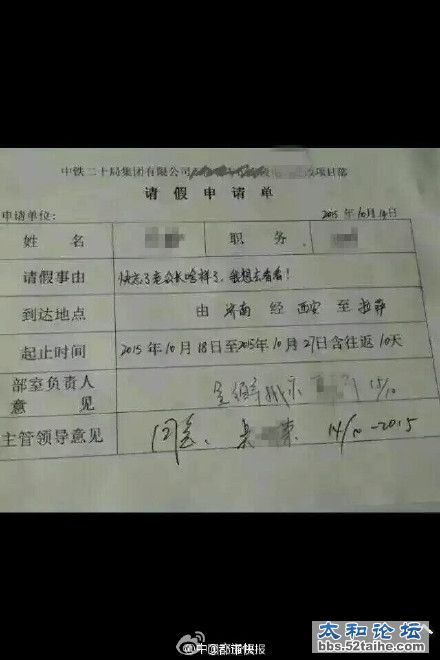 中铁二十局集团有限公司 改项目部
请假申请单
申请单位： 2015年10月14日
姓名 职务
请假事由 快忘了老公长啥样了，我想去看看！
到达地点 由济南经西安至拉萨
起止时间 2015年10月18日至2015年10月27日含往返10天
部室负责人意见 15/10
主管领导意见 同意、吴 14/10-2015
太和论坛
bbs.52taihe.com
@都市快报